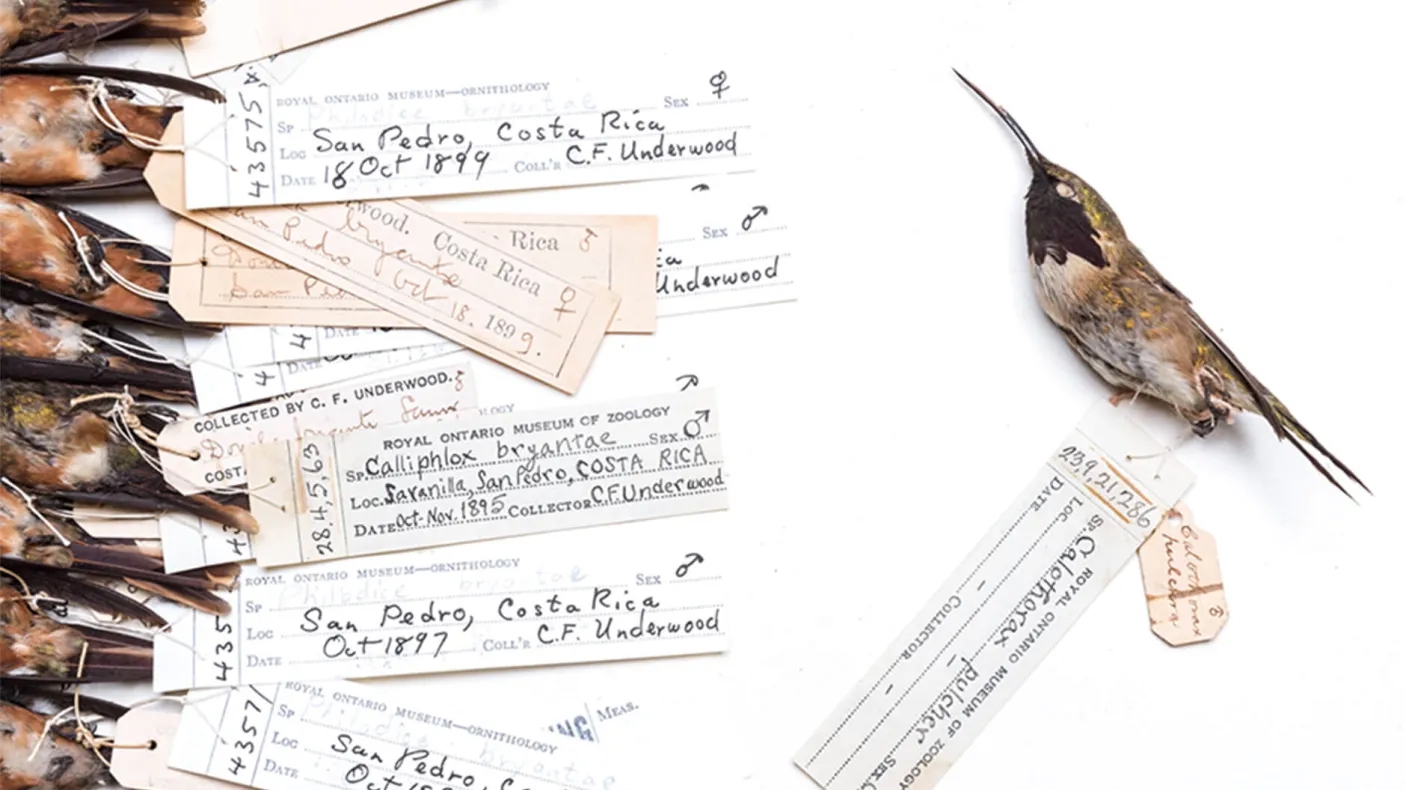 43575
ROYAL ONTARIO MUSEUM—ORNITHOLOGY
Philodice bryantae SEX ♀
SP
LOC San Pedro, Costa Rica
DATE 18 Oct 1899 COLL'R C.F. Underwood
SEX ♂
Underwood
Rica ♂
San Pe
wood. Costa Rica
bryantae ♀
San Pedro Oct 18. 1899.
DATE
4
DATE
4
COLLECTED BY C. F. UNDERWOOD. ♂
COSTA
28.4.5.63
ROYAL ONTARIO MUSEUM OF ZOOLOGY
SP. Calliphlox bryantae SEX ♂
LOC. Savanilla, San Pedro, COSTA RICA
DATE Oct-Nov. 1895 COLLECTOR C.F. Underwood
435
ROYAL ONTARIO MUSEUM—ORNITHOLOGY
SP Philodice bryantae SEX ♂
LOC San Pedro, Costa Rica
DATE Oct 1897 COLL'R C.F. Underwood
4357
ROYAL ONTARIO MUSEUM—ORNITHOLOGY
MEAS.
SP Philodice bryantae
LOC San Pedro,
DATE Oct
239,21,286
ROYAL ONTARIO MUSEUM OF ZOOLOGY
SP. Calothorax pulcher SEX
LOC. -
DATE - COLLECTOR -
Calothorax
pulchra ♂